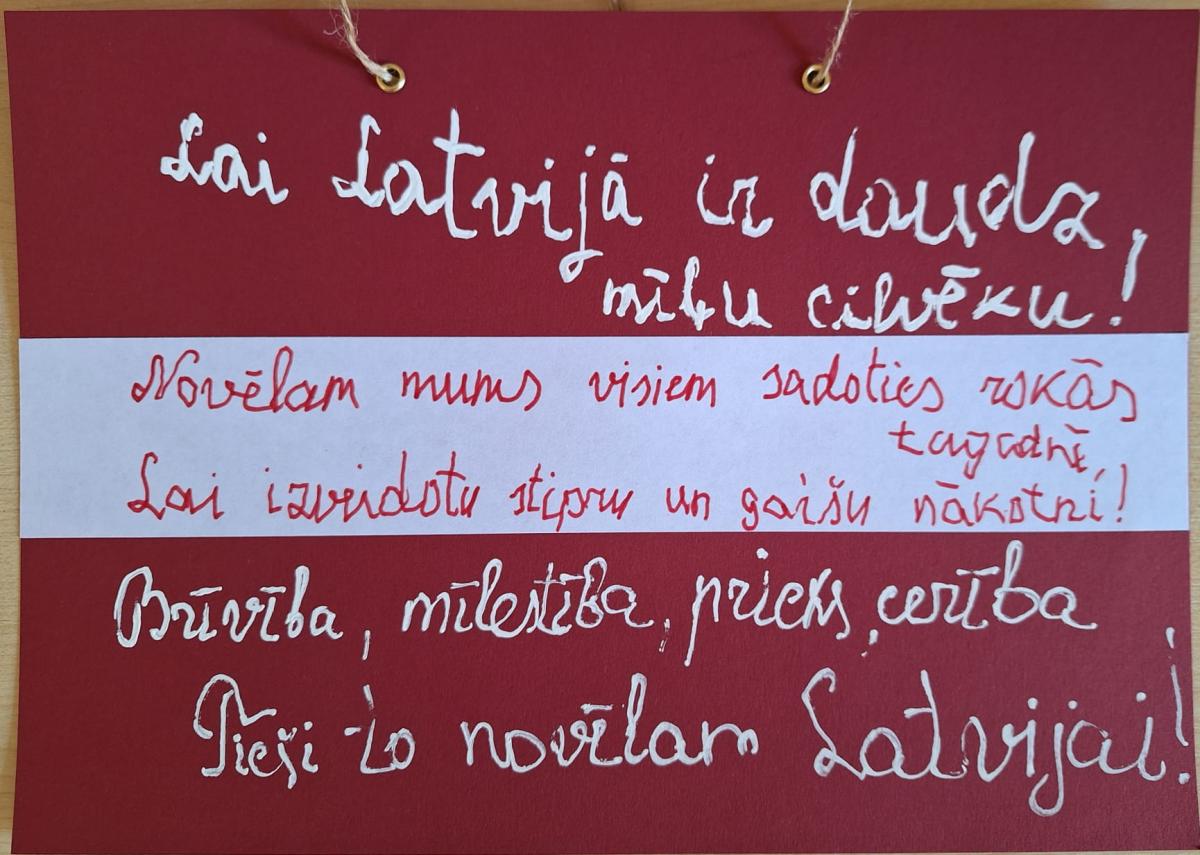 Lai Latvijā ir daudz,
mīļu cilvēku!
Novēlam mums visiem sadoties rokās
tagadnē,
Lai izveidotu stipru un gaišu nākotni!
Brīvība, mīlestība, prieks, cerība
Tieši to novēlam Latvijai!